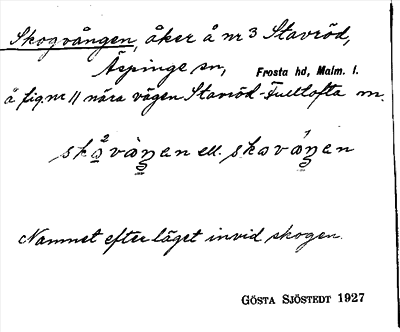 Skogvången, åker å nr 3 Stavröd,
Äspinge sn, Frosta hd, Malm. l.
å fig nr 11 nära vägen Stavröd-Fulltofta
Namnet efter läget invid skogen.
GÖSTA SJÖSTEDT 1927